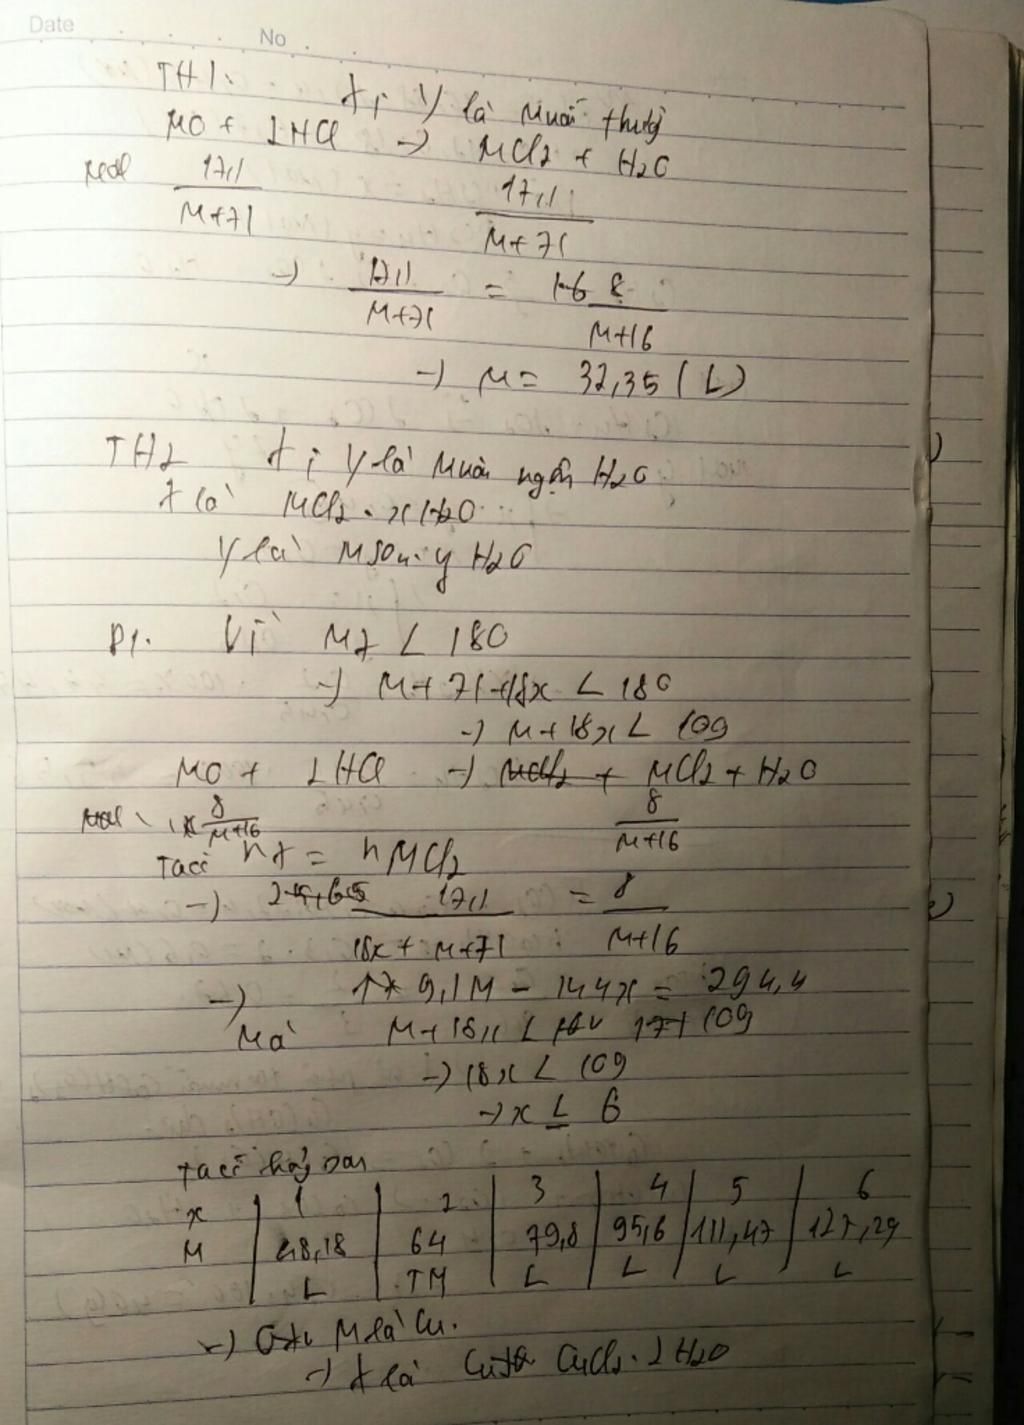 Date
No
TH1: X; Y là muối thường
MO + 2HCl → MCl2 + H2O
Mol 17,1 / M+71 17,1 / M+71
→ 17,1 / M+71 = 8 / M+16
→ M = 32,35 (L)
TH2 X; Y là muối ngậm H2O
X là MCl2 . xH2O
Y là MSO4 . y H2O
P1. Vì MX < 180
→ M + 71 + 18x < 180
→ M + 18x < 109
MO + 2HCl → MCl2 + MCl2 + H2O
Mol 8 / M+16 8 / M+16
Ta có nX = nMCl2
→ 17,1 / 18x + M + 71 = 8 / M+16
→ 9,1M - 144x = 294,4
Mà M + 18x < 109
→ 18x < 109
→ x ≤ 6
Ta có bảng sau
x | 1 | 2 | 3 | 4 | 5 | 6
M | 48,18 | 64 | 79,8 | 95,6 | 111,47 | 127,29
L | TM | L | L | L | L
→ M là Cu.
→ X là CuCl2 . 2H2O